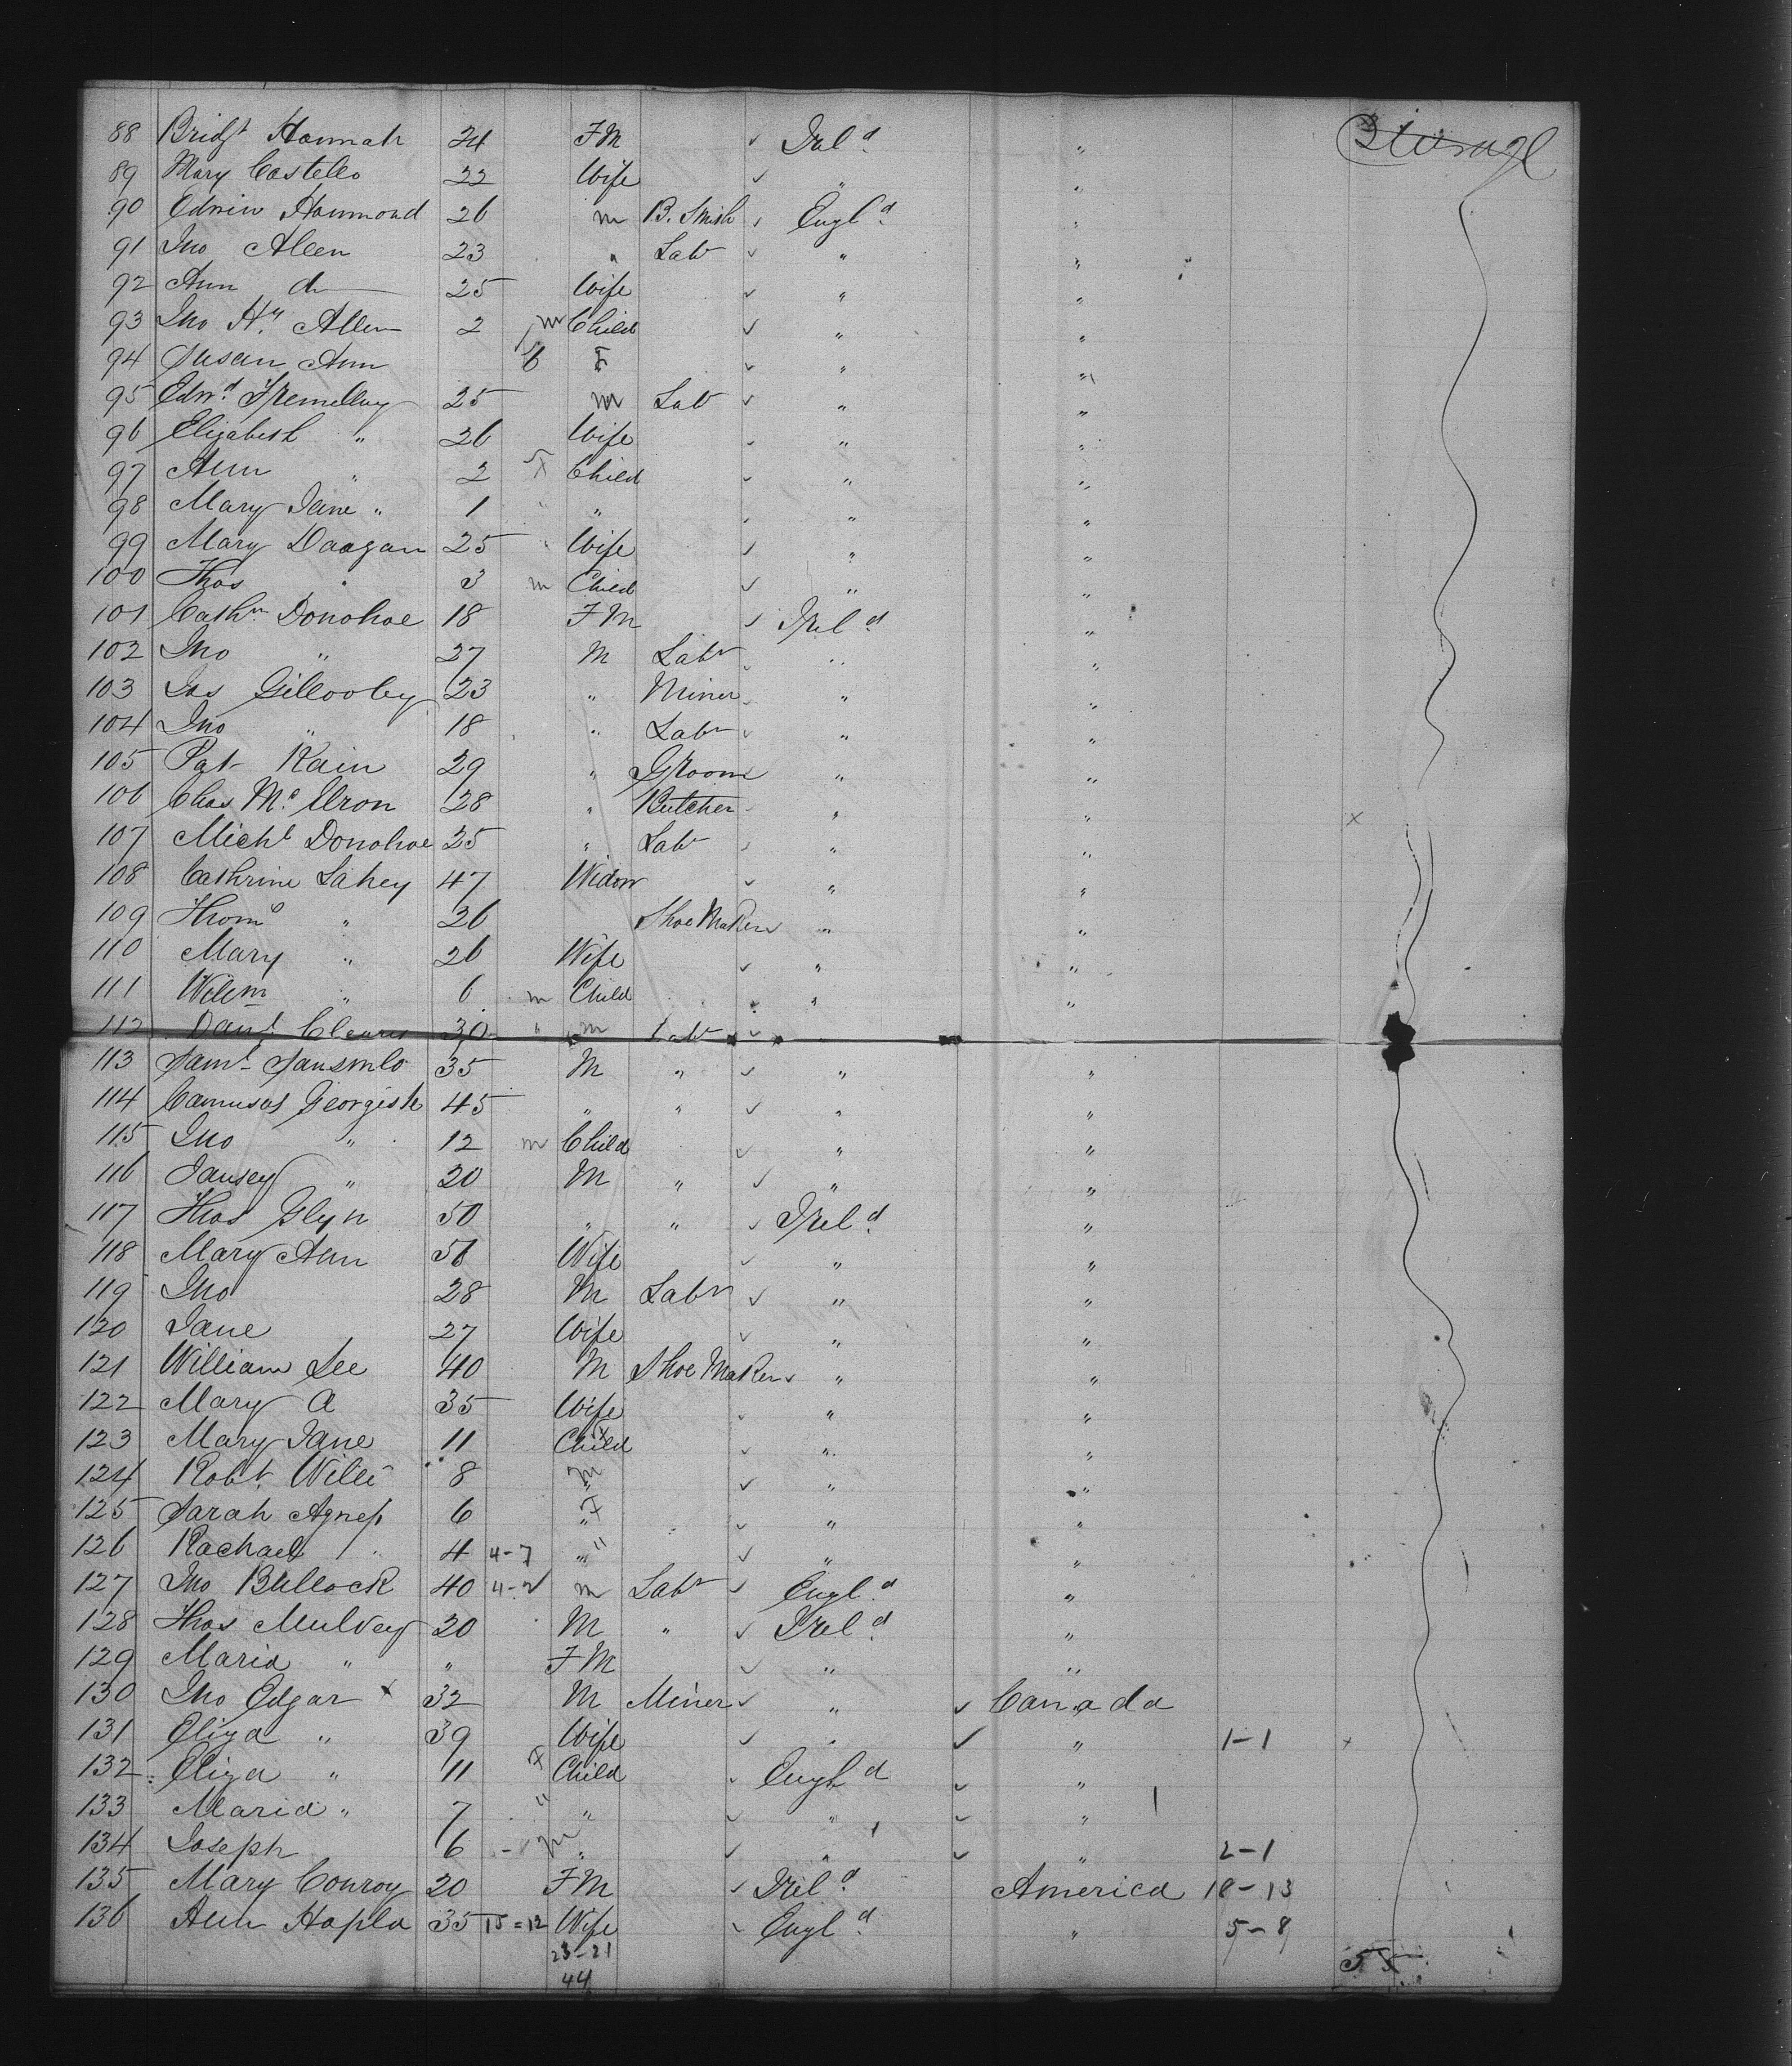 Steerage
88 Bridgt Hannah 24 FM ✓ Ireld "
89 Mary Costello 22 Wife ✓ " "
90 Edwin Hammond 26 m B. Smith ✓ Engld "
91 Jno Allen 23 " Labr ✓ " "
92 Ann do 25 Wife ✓ " "
93 Jno Hy Allen 2 m Child ✓ " "
94 Susan Ann 6 F ✓ " "
95 Edwd 25 m Lab ✓ " "
96 Elizabeth " 26 Wife ✓ " "
97 Ann " 2 F Child ✓ " "
98 Mary Jane " 1 " " ✓ " "
99 Mary Daagan 25 " Wife ✓ " "
100 Thos " 3 m Child ✓ " "
101 Cathn Donohoe 18 FM ✓ Ireld "
102 Jno " 27 M Labr ✓ " "
103 Jas Gillooley 23 " Miner ✓ " "
104 Jno " 18 " Labr ✓ " "
105 Pat Kain 29 " Groom " "
106 Chas Mc Elron 28 " Butcher " " x
107 Michl Donohoe 25 " Labr ✓ " "
108 Cathrine Lahey 47 Widow ✓ " "
109 Thoms " 26 Shoe Maker " "
110 Mary " 26 Wife ✓ " "
111 Willm " 6 m Child ✓ " "
112 Danl Cleary 30 " m Labr ✓ "
113 Saml 35 M " ✓ " "
114 Georgish 45 " " ✓ " "
115 Jno " 12 m Child ✓ " "
116 Jansey " 20 M " ✓ " "
117 Thos Glyn 50 " " ✓ Ireld "
118 Mary Ann 56 Wife ✓ " "
119 Jno 28 M Labr ✓ " "
120 Jane 27 Wife ✓ " "
121 William Lee 40 M Shoe Maker ✓ " "
122 Mary A 35 Wife ✓ " "
123 Mary Jane 11 Child ✓ " "
124 Robt Willi 8 m " ✓ " "
125 Sarah Agness 6 F " ✓ " "
126 Rachael " 4 4-7 " " ✓ " "
127 Jno Bullock 40 4-2 m Labr ✓ Engld "
128 Thos Mulvey 20 M " ✓ Ireld "
129 Maria " " FM ✓ " "
130 Jno Edgar x 32 M Miner ✓ " ✓ Canada
131 Eliza " 39 Wife ✓ " ✓ " 1-1 x
132 Eliza " 11 F Child ✓ Engld ✓ "
133 Maria " 7 " " ✓ " ✓ " 1
134 Joseph 6 m " ✓ " ✓ " 2-1
135 Mary Conroy 20 FM ✓ Ireld America 18-13
136 Ann Hapla 35 15=12 Wife ✓ Engld " 5-8
23-21
44
55